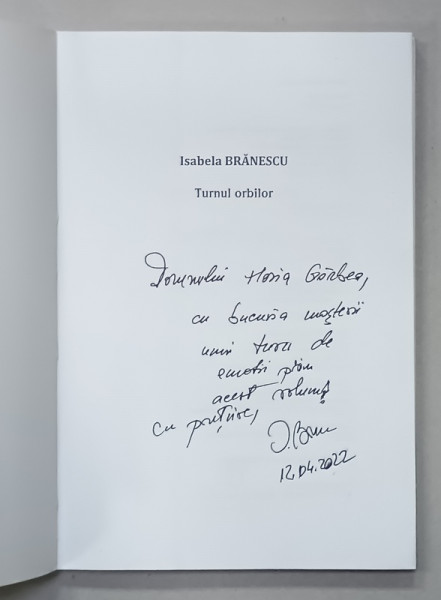 Isabela BRĂNESCU
Turnul orbilor
Domnului Horia Gârbea,
cu bucuria nașterii
unui turn de
emoții prin
acest volum,
cu prețuire,
I. Bran
12.04.2022